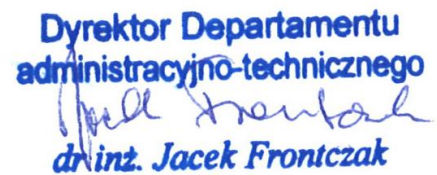 Dyrektor Departamentu
administracyjno-technicznego
Jacek Frontczak
dr inż. Jacek Frontczak